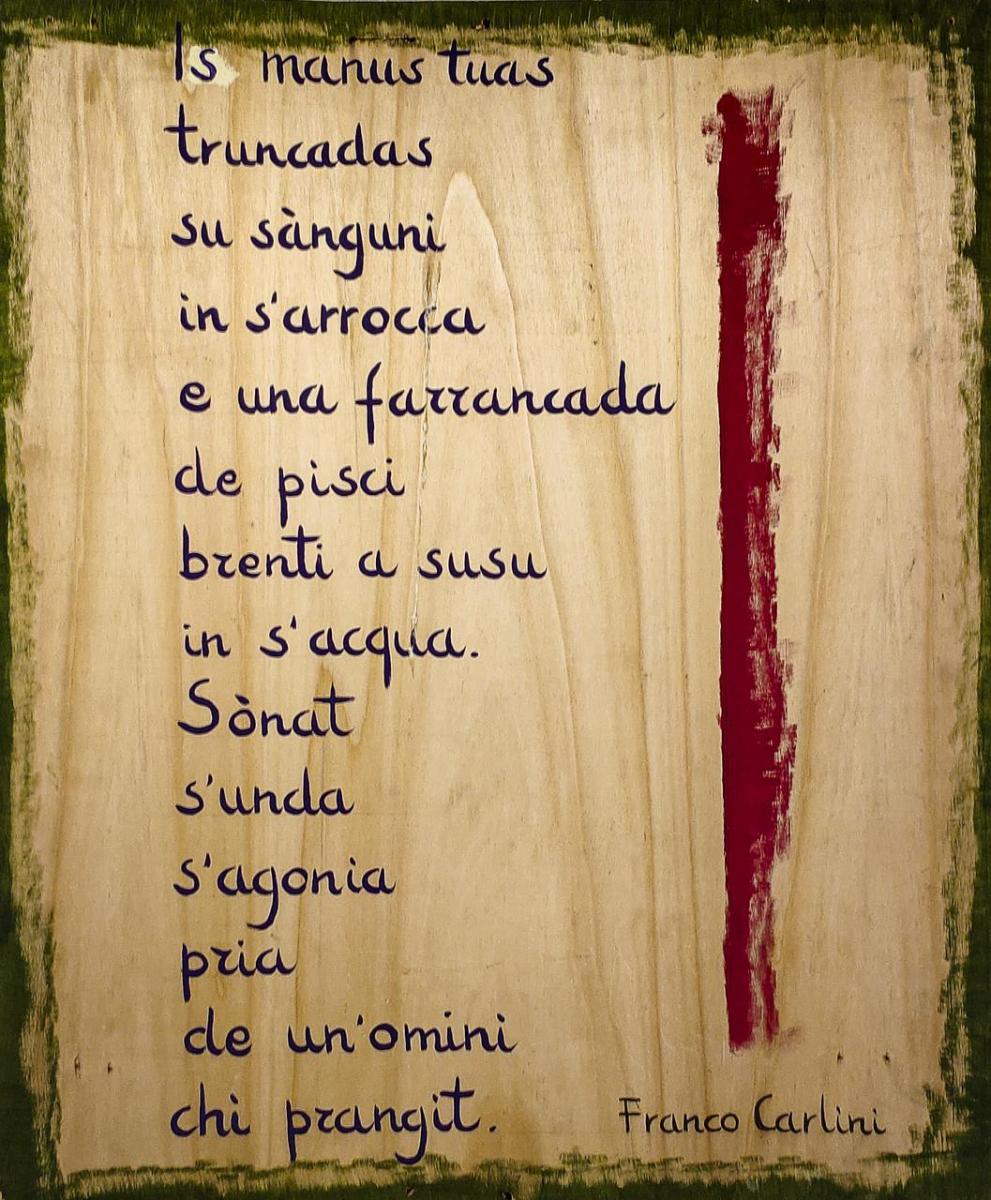 Is manus tuas
truncadas
su sànguni
in s'arrocca
e una farrancada
de pisci
brenti a susu
in s'acqua.
Sònat
s'unda
s'agonia
pria
de un'omini
chi prangit.
Franco Carlini